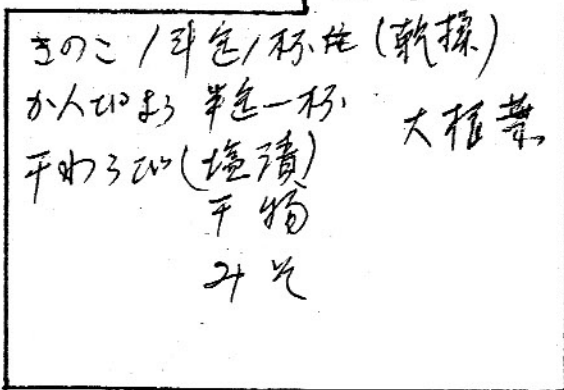 きのこ 1斗缶1杯位(乾燥)
かんぴょう 半缶一杯
大根葉
干わらび(塩漬)
干物
みそ